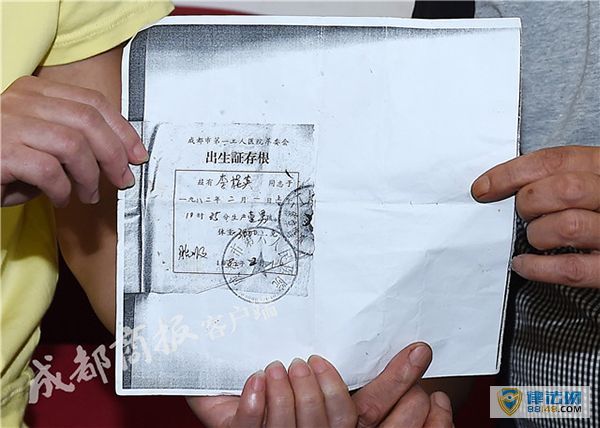 成都市第一工人医院革委会
出生証存根
兹有李桂英同志于
一九八二年二月一日
19时25分生产壹男孩
体重
成都商报客户端
律法网
98148.com